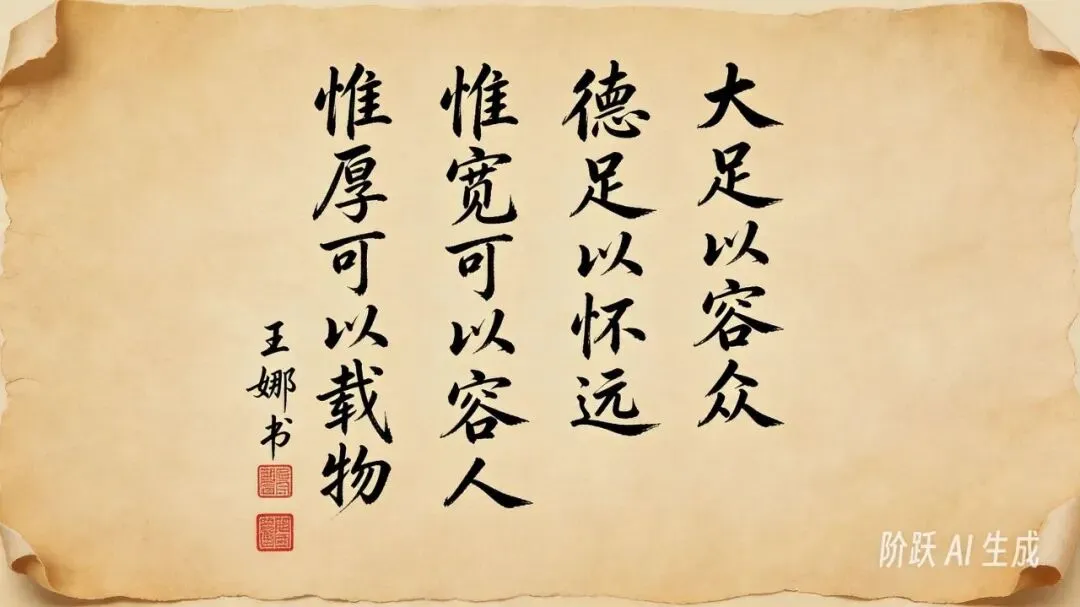 大足以容众
德足以怀远
惟宽可以容人
惟厚可以载物
王娜书
阶跃 AI 生成